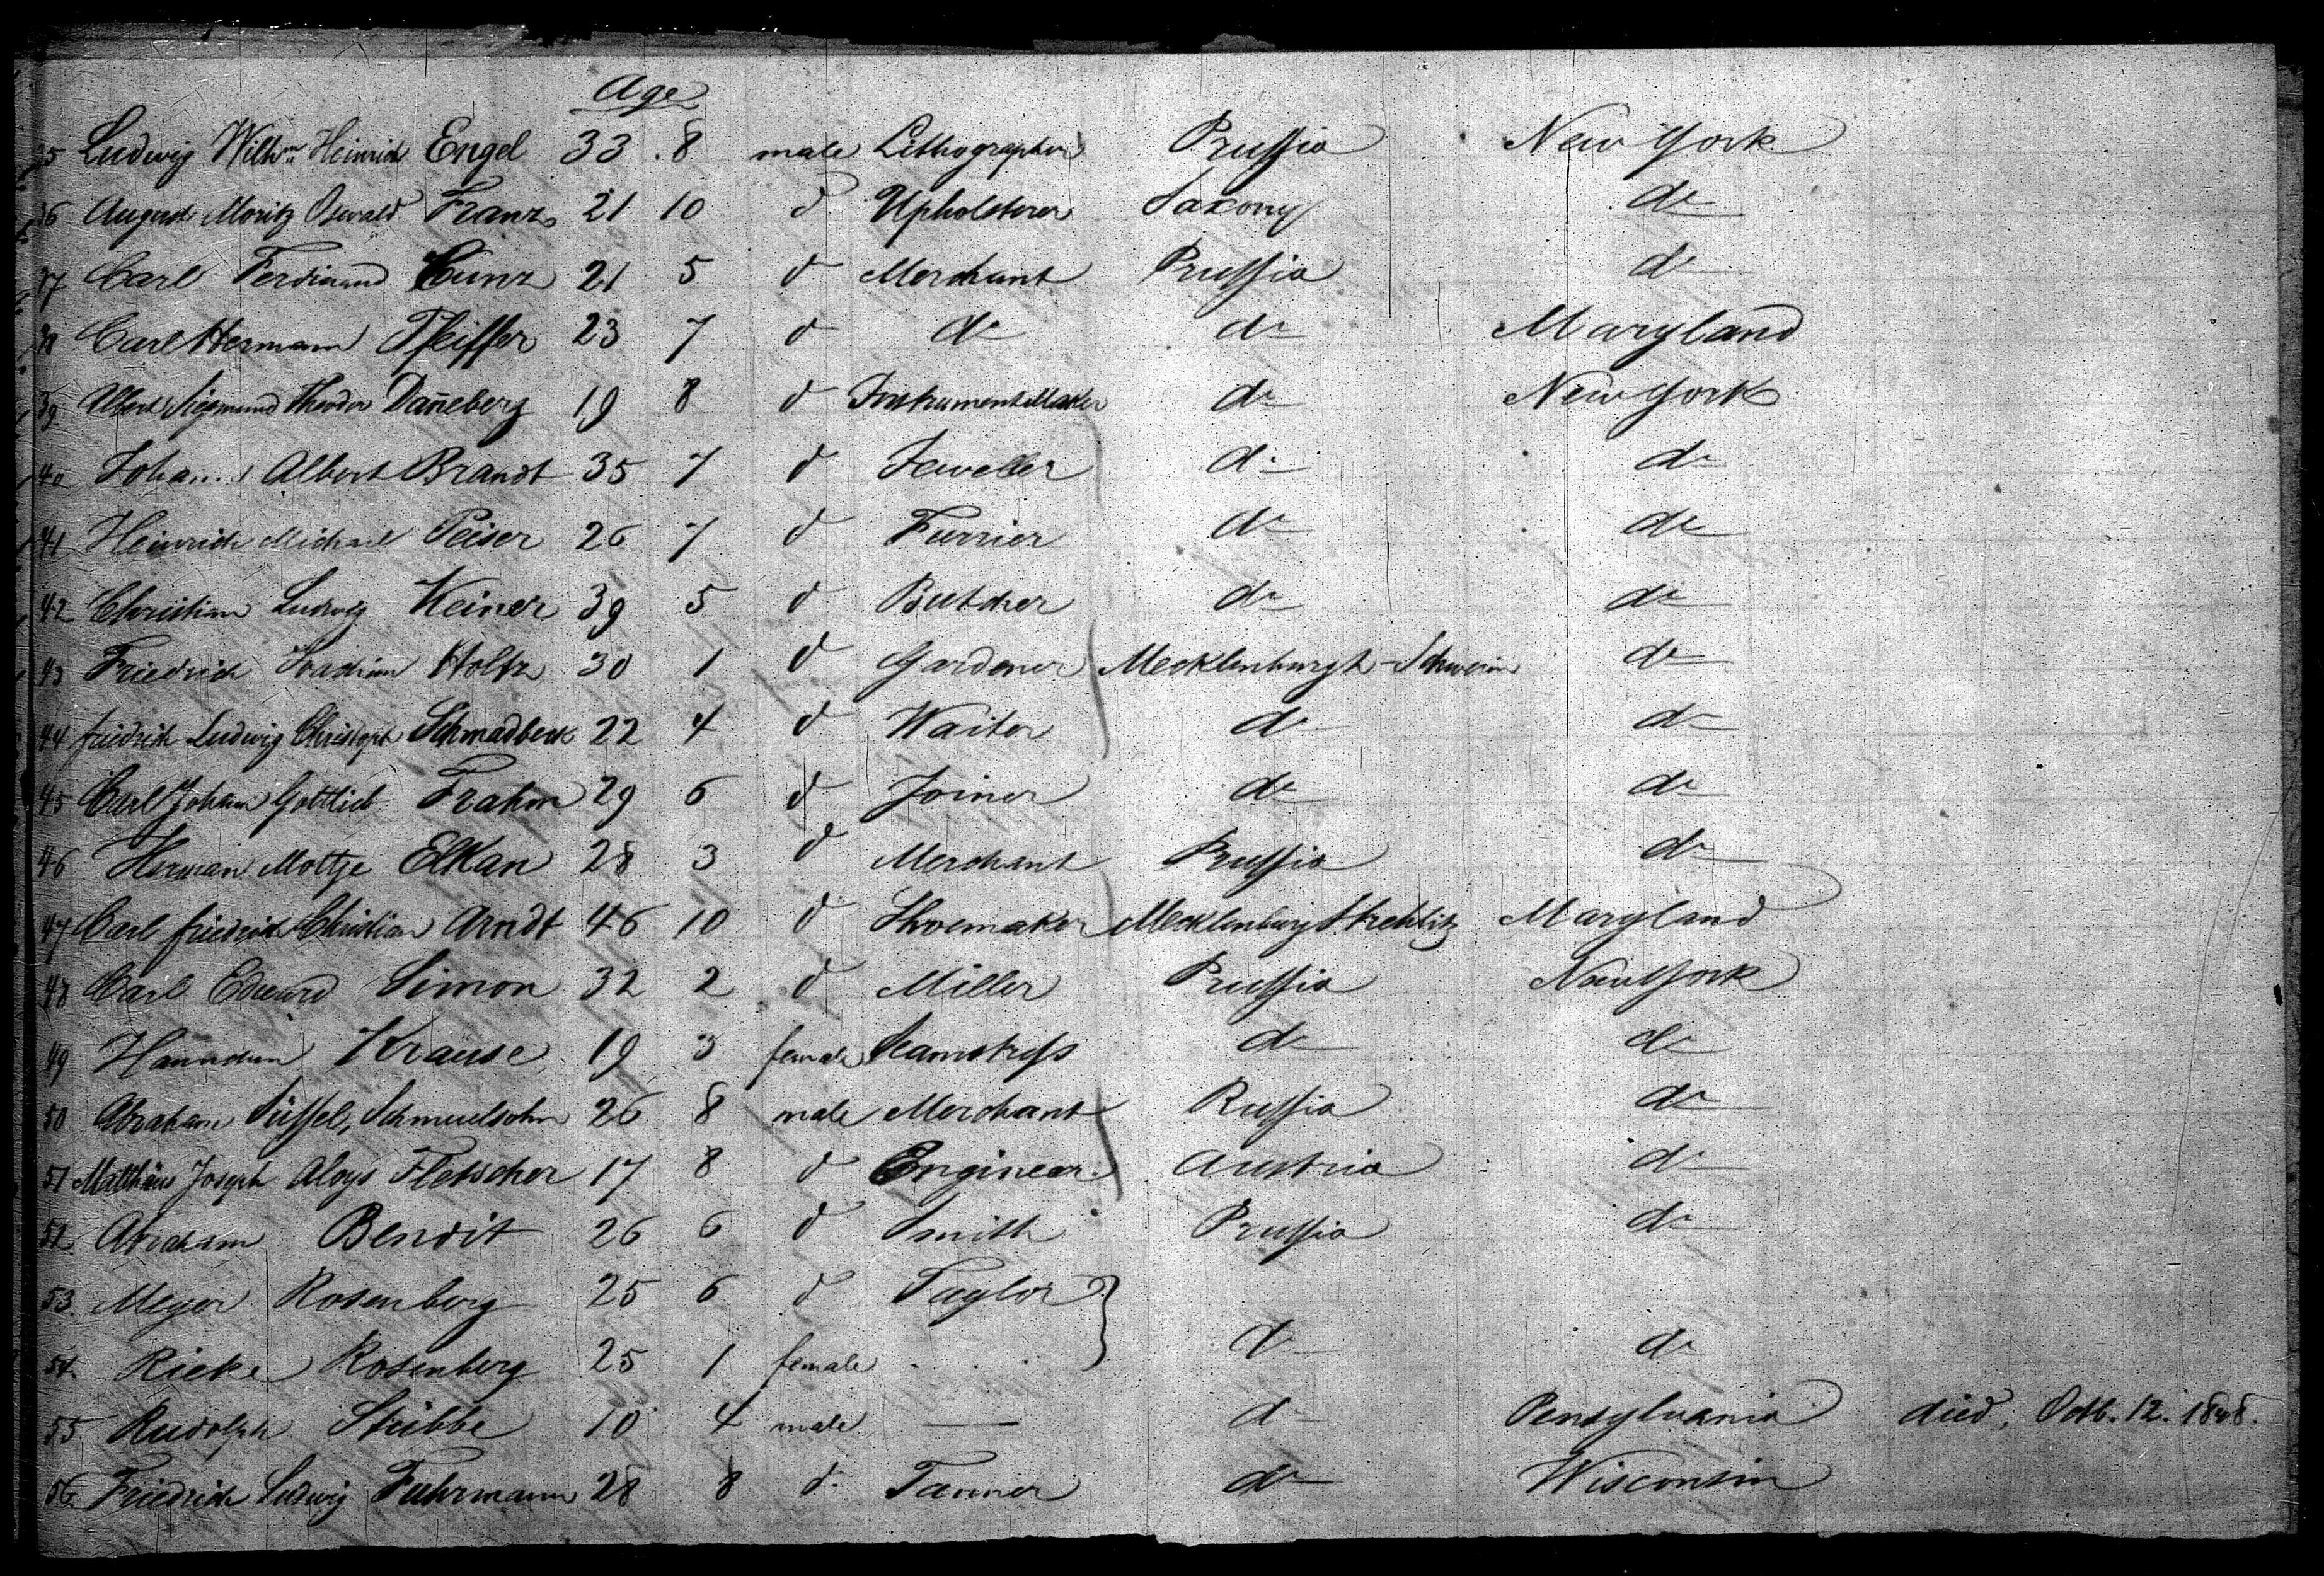 Age
35 Ludwig Wilhm Heinrich Engel 33 8 male Lithographer Prussia New York
36 August Moritz Oswald Franz 21 10 do Upholsterer Saxony do
37 Carl Ferdinand Cunz 21 5 do Merchant Prussia do
38 Carl Hermann Pfeiffer 23 7 do do do Maryland
39 Albert Siegmund Theodor Dan̄eberg 19 8 do InstrumentMaker do New York
40 Johann Albert Brandt 35 7 do Jeweller do do
41 Heinrich Michael Peiser 26 7 do Furrier do do
42 Christian Ludwig Keiner 39 5 do Butcher do do
43 Friedrich Joachim Holtz 30 1 do Gardener Mecklenburgh-Schwerin do
44 friedrich Ludwig Christoph Schmadbeck 22 4 do Waiter do do
45 Carl Johann Gottlieb Frahm 29 6 do Joiner do do
46 Herman Mottje Elkan 28 3 do Merchant Prussia do
47 Carl friedrich Christian Arndt 46 10 do Shoemaker Mecklenburg Strehlitz Maryland
48 Carl Eduard Simon 32 2 do Miller Prussia New York
49 Hannchen Krause 19 3 female Seamstress do do
50 Abraham Süssel, Schmuelsohn 26 8 male Merchant Russia do
51 Matthäus Joseph Aloys Fletscher 17 8 do Engineer Austria do
52 Abraham Bendit 26 6 do Smith Prussia do
53 Meyer Rosenberg 25 6 do Taylor
54 Rieke Rosenberg 25 1 female do do
55 Rudolph Stubbe 10 4 male — do Pensylvania died, Octb. 12. 1848.
56 Friedrich Ludwig Fuhrmann 28 8 do Tanner do Wisconsin